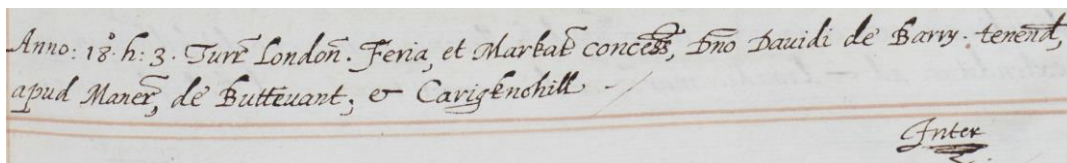 Anno: 18º. h: 3. Turr̃ London̄. Feria, et Markat̃ concess̃, Dn̄o Dauidi de Barry. tenend̃,
apud Maner̃, de Buttevant, & Carigknohill
Inter